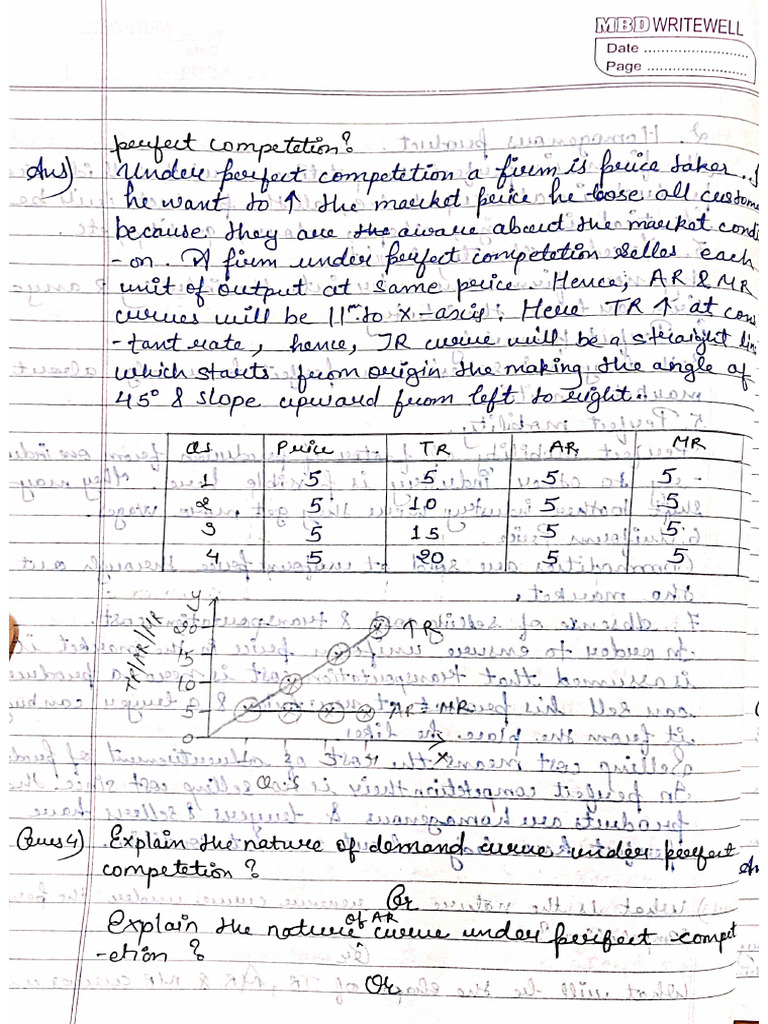 MBD WRITEWELL
Date
Page
perfect competetion?
Ans) Under perfect competetion a firm is price taker. If
he want to ↑ the market price he lose all custome
because they are the aware about the market condi
-on. A firm under perfect competetion selles each
unit of output at same price. Hence, AR & MR
curves will be 11m to x-axis. Here TR ↑ at cons
-tant rate, hence, TR curve will be a straight lin
which starts from origin the making the angle of
45° & slope upward from left to right.
Qs Price TR AR MR
1 5 5 5 5
2 5 10 5 5
3 5 15 5 5
4 5 20 5 5
TR/AR/MR
Y
20
15
10
5
0
TR
AR = MR
X
Ques 4) Explain the nature of demand curve under perfect
competetion?
Or
Explain the nature of AR curve under perfect compet
-etion?
Or